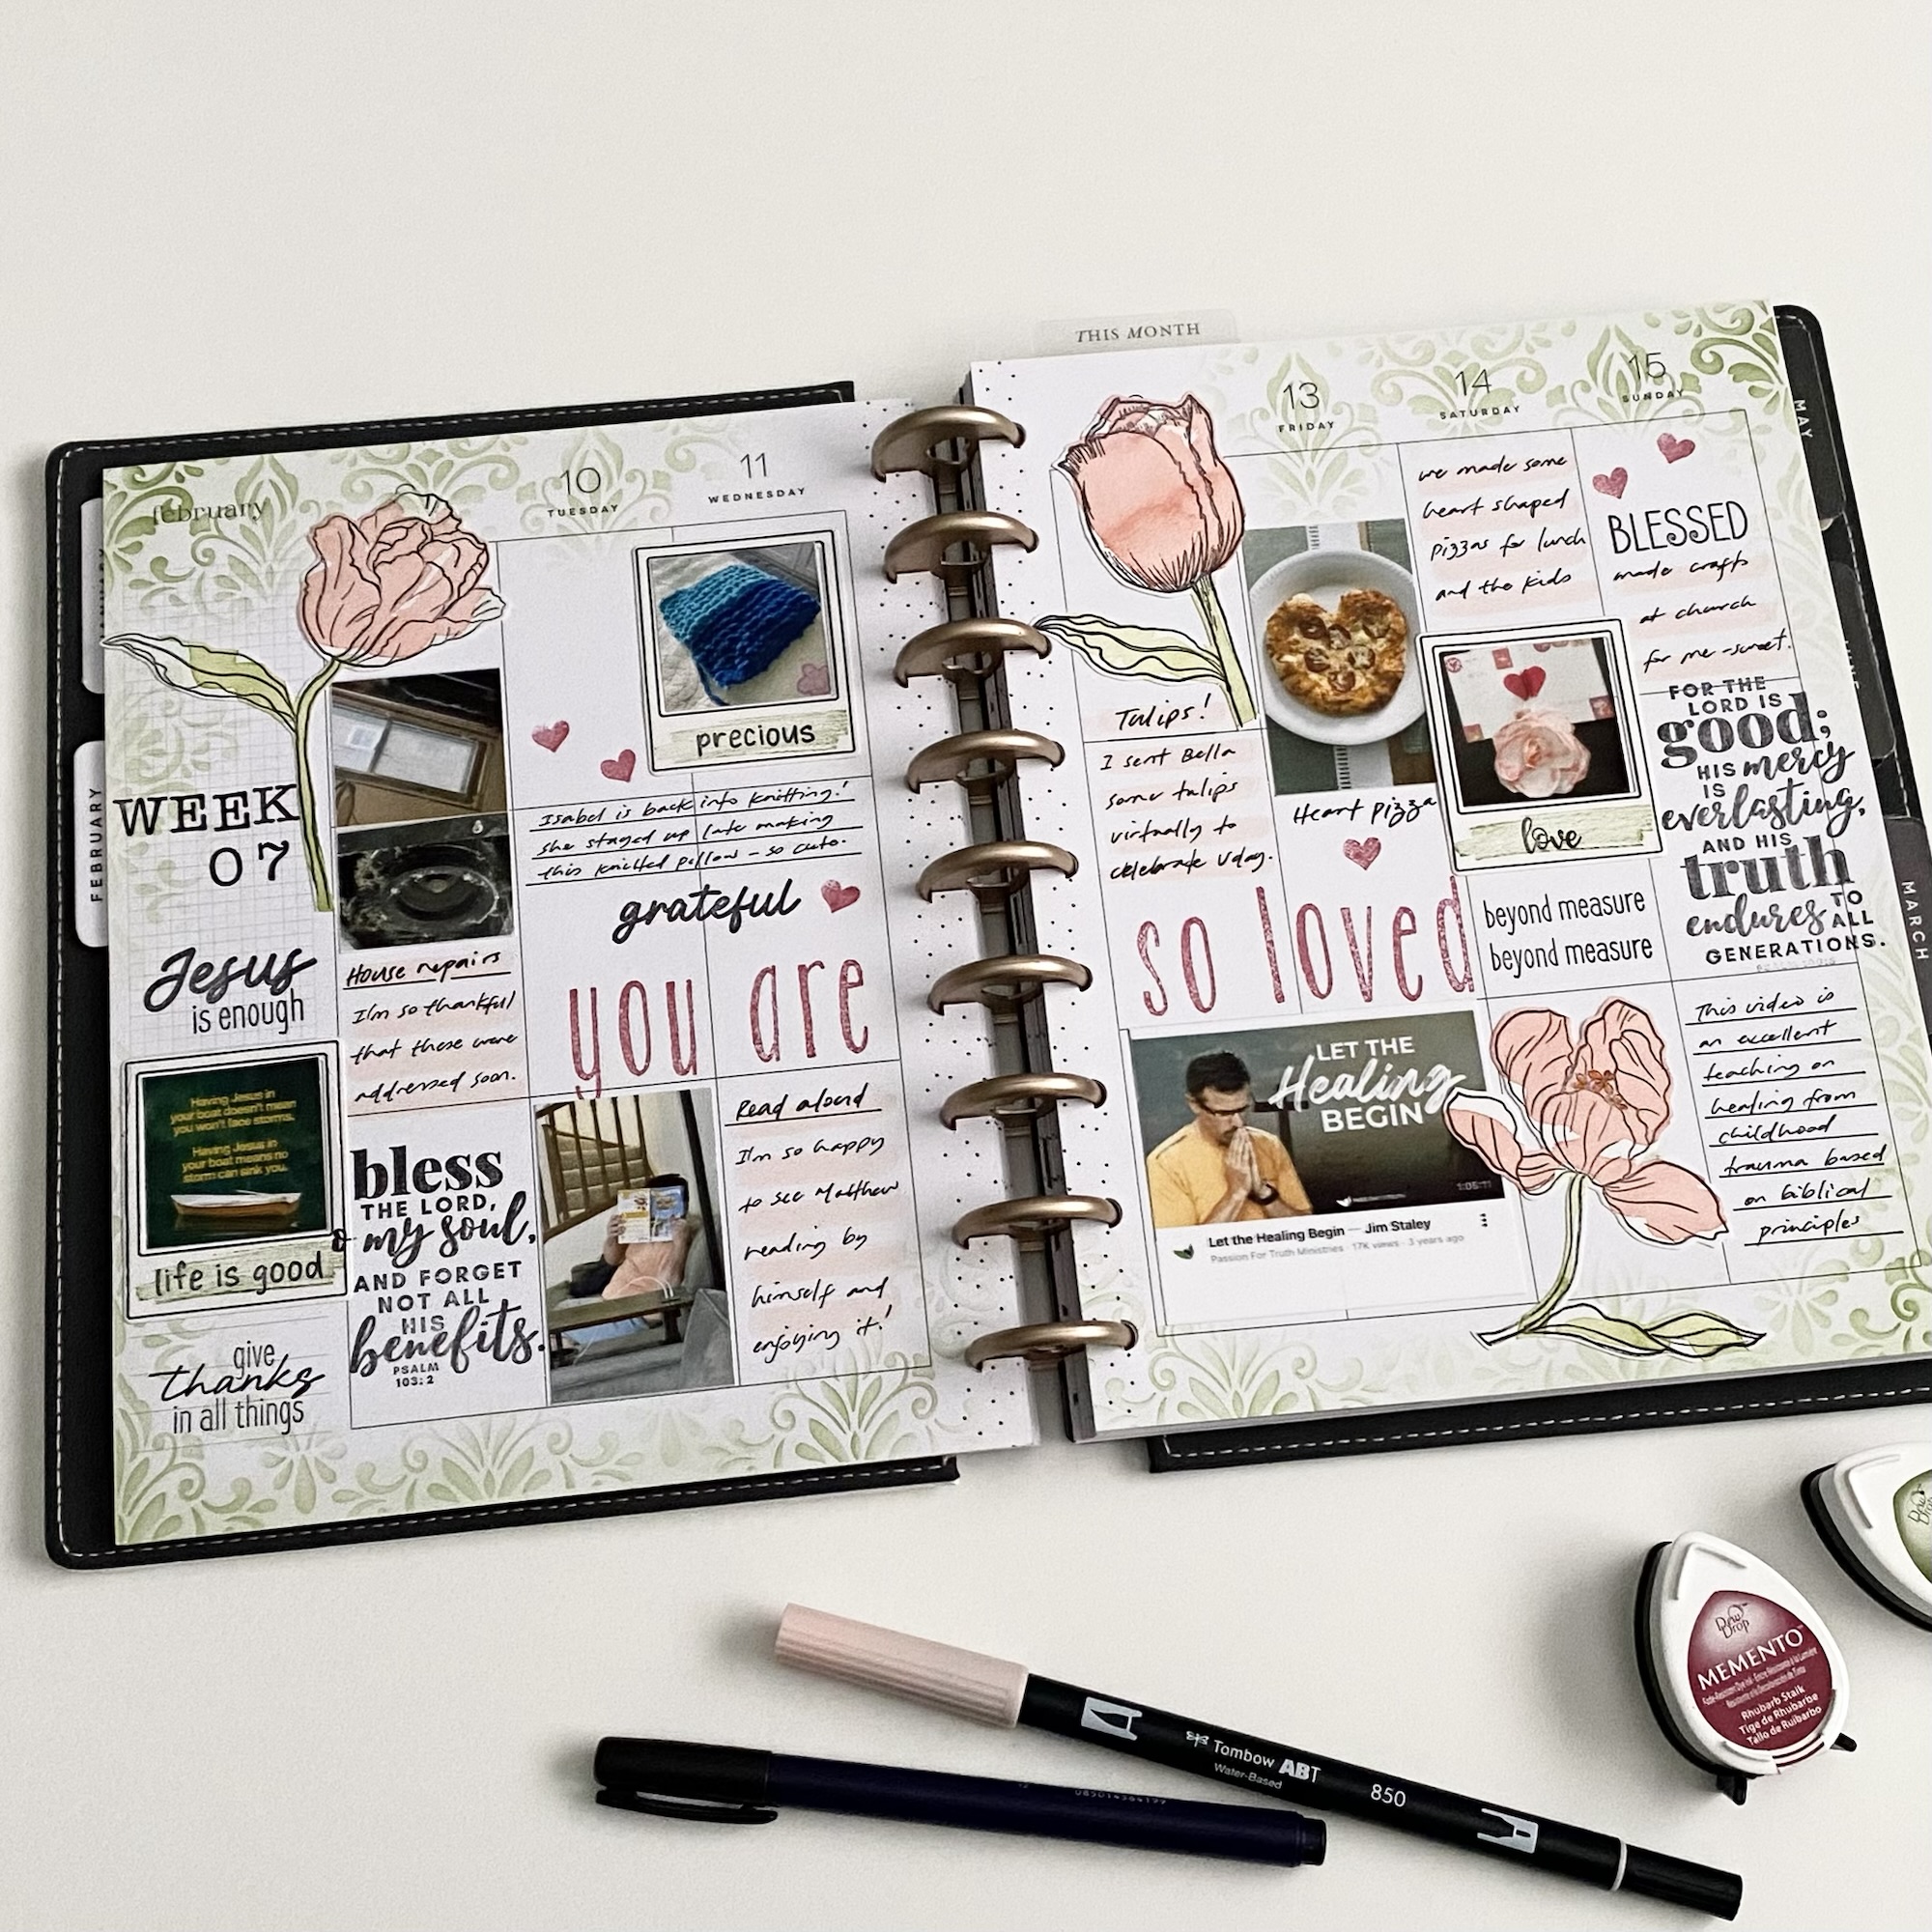 THIS MONTH
february
10
TUESDAY
11
WEDNESDAY
WEEK
07
Jesus
is enough
Having Jesus in
your boat doesn't mean
you won't face storms.
Having Jesus in
your boat means no
storm can sink you.
life is good
give
thanks
in all things
House repairs
I'm so thankful
that these were
addressed soon.
bless
THE LORD,
O my soul,
AND FORGET
NOT ALL
HIS
benefits.
PSALM
103:2
precious
Isabel is back into knitting!
she stayed up late making
this knitted pillow - so cute.
grateful
you are
Read aloud
I'm so happy
to see Matthew
reading by
himself and
enjoying it!
13
FRIDAY
14
SATURDAY
15
SUNDAY
Tulips!
I sent Bella
some tulips
virtually to
celebrate Vday.
Heart pizza
we made some
heart shaped
pizzas for lunch
and the kids
love
BLESSED
made crafts
at church
for me - sweet!
FOR THE
LORD IS
good;
HIS mercy
IS
everlasting,
AND HIS
truth
endures TO
ALL
GENERATIONS.
so loved
beyond measure
beyond measure
LET THE
Healing
BEGIN
1:05:11
Let the Healing Begin — Jim Staley
Passion For Truth Ministries · 17K views · 3 years ago
This video is
an excellent
teaching on
healing from
childhood
trauma based
on biblical
principles
FEBRUARY
MARCH
MAY
Tombow ABT
Water-Based
850
Dew
Drop
MEMENTO
Rhubarb Stalk
Tige de Rhubarbe
Tallo de Ruibarbo